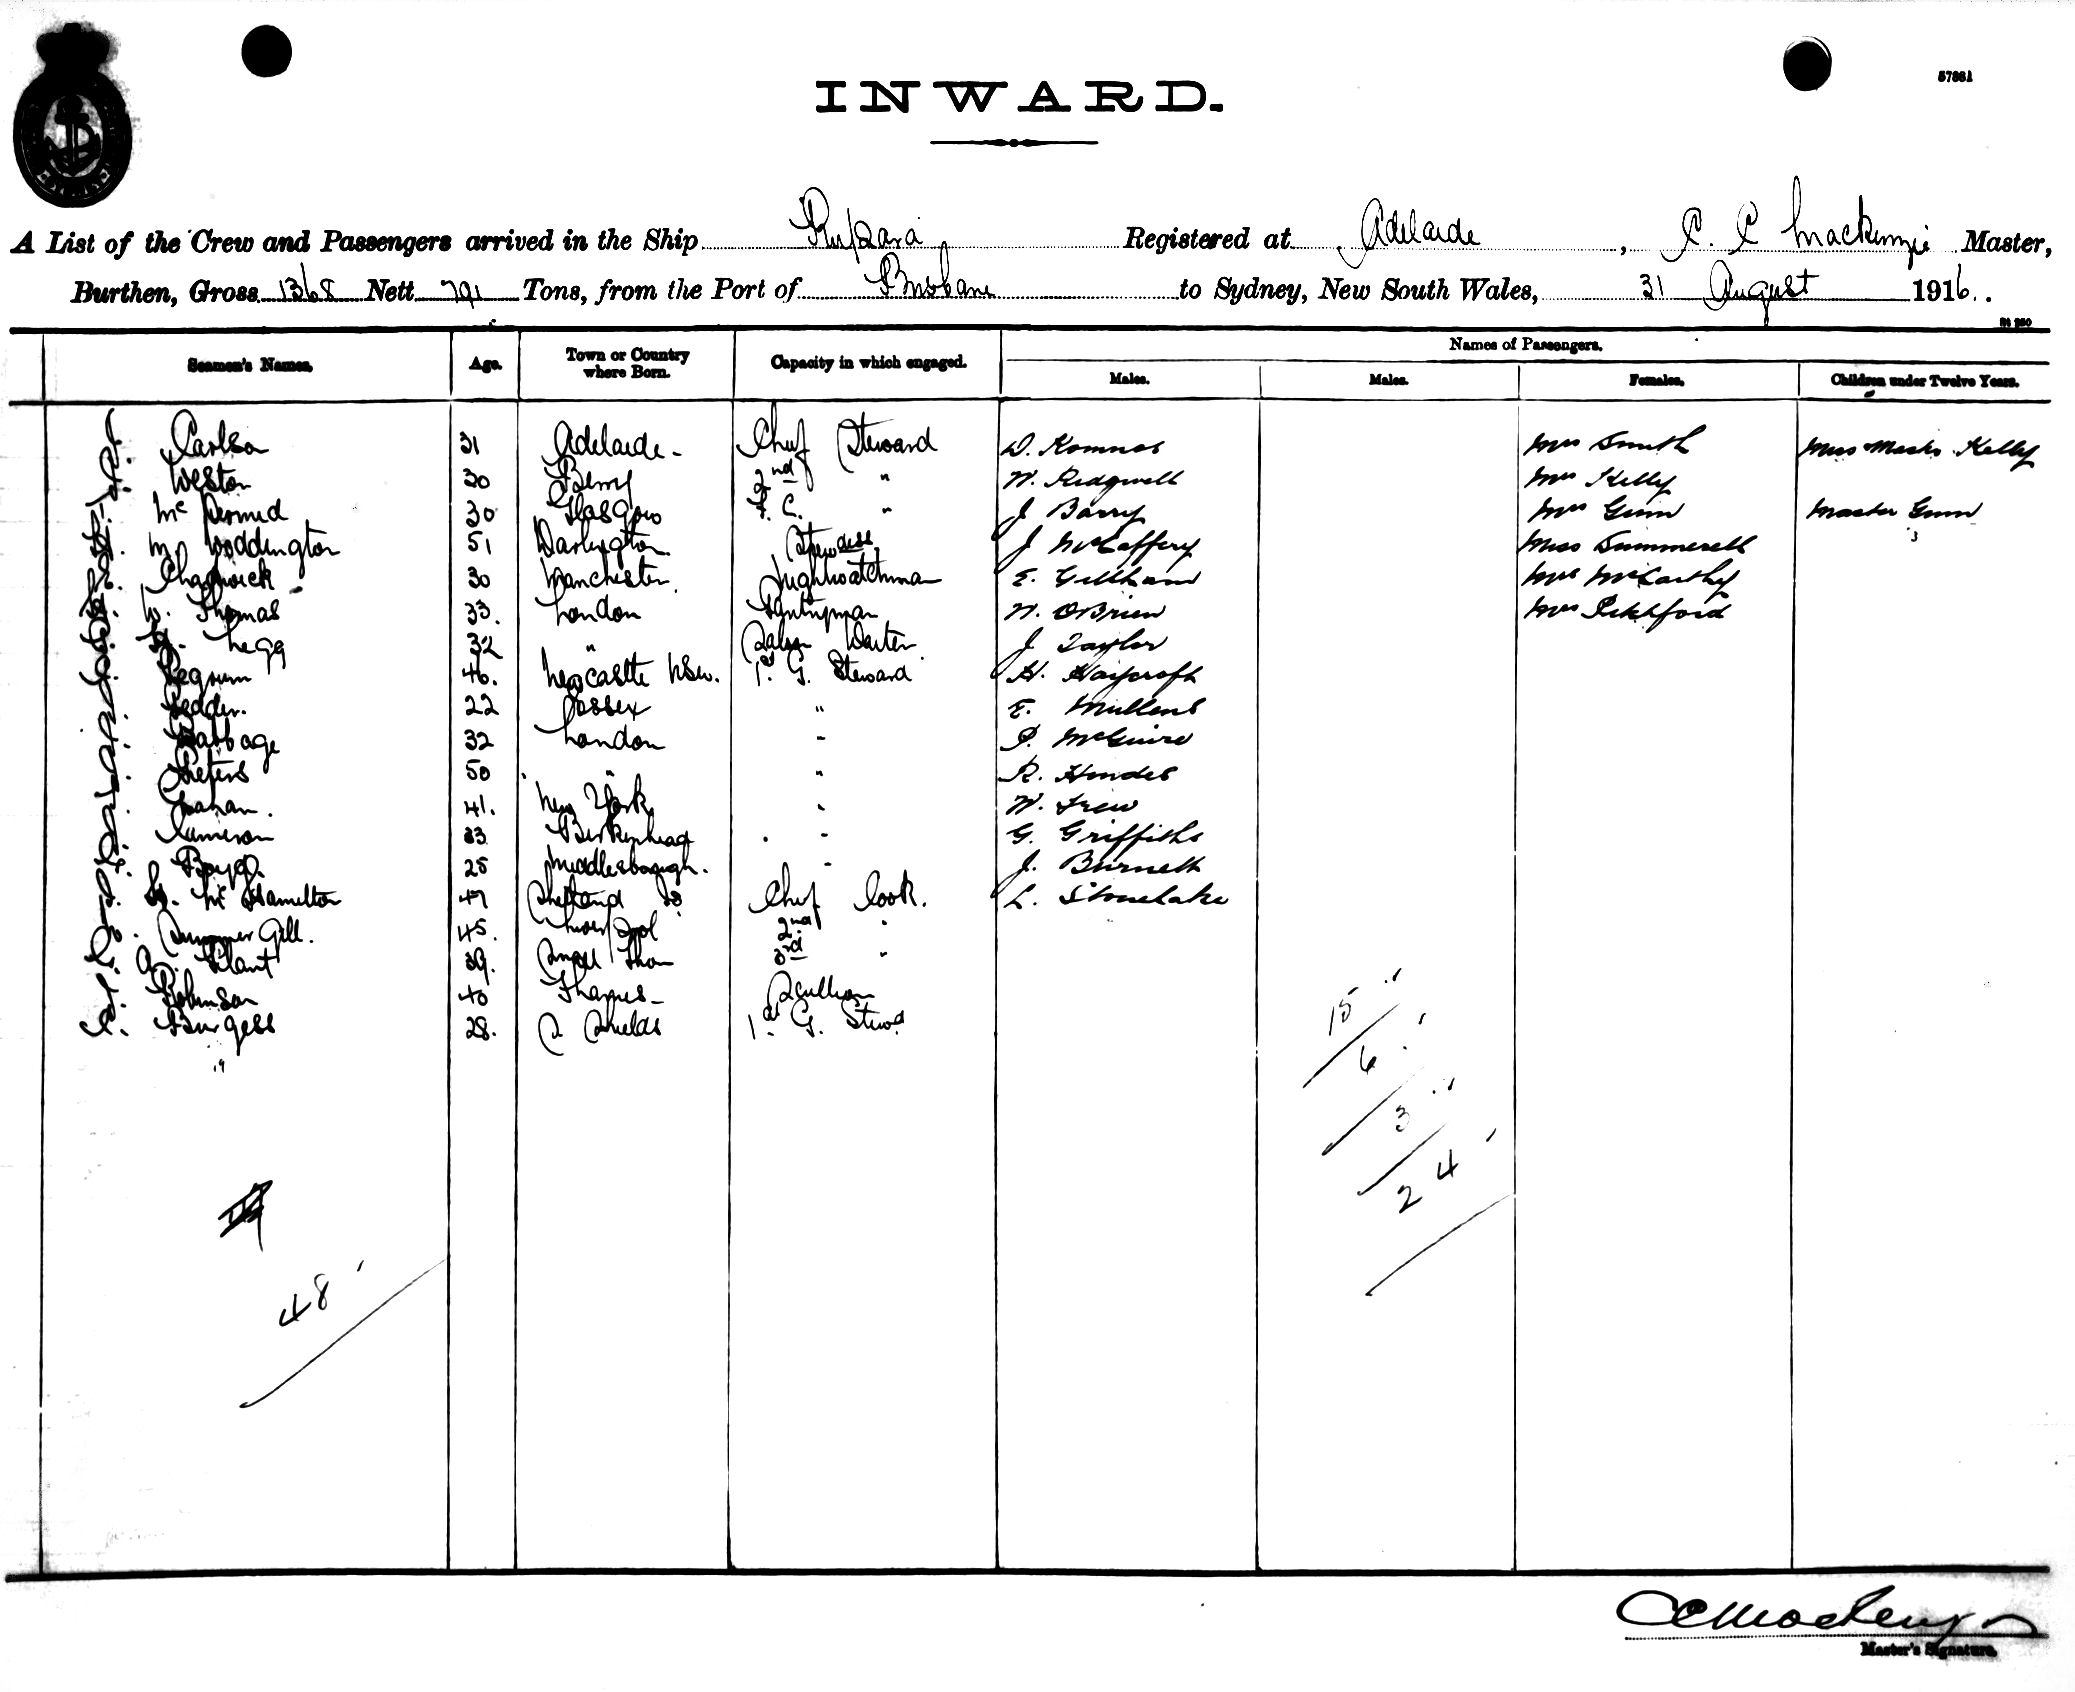 57881
INWARD.
A List of the Crew and Passengers arrived in the Ship Rupara Registered at Adelaide, C. C Mackenzie Master,
Burthen, Gross 1368 Nett 791 Tons, from the Port of Brisbane to Sydney, New South Wales, 31 August 1916.
Seamen's Names. Age. Town or Country where Born. Capacity in which engaged. Names of Passengers.
Males. Males. Females. Children under Twelve Years.
Carlson 31 Adelaide - Chief Steward D. Komnos Mrs Smith Miss Kelly
Weston 30 Berry 2nd " W. Ridgwell Mrs Kelly
McDermid 30 Glasgow F. C. " J Barry Mrs Gunn Master Gunn
M. Woddington 51 Darlington Stewdess J McCaffery Miss Summerell 3
Chadwick 30 Manchester. Nightwatchman E. Gillham Mrs McCarthy
W. Thomas 33. London Pantryman W. OBrien Mrs Pitchford
Legg 32 " Saloon Waiter J Taylor
Pegrum 46. Newcastle NSW. 1st G. Steward H. Haycroft
Pedder. 22 Essex " E. Mullens
Babbage 32 London " P. McGuire
Peters 50 " " R. Hindes
41. New York " W. Frew
Cameron 33 Birkenhead " G. Griffiths
Boyd. 25 Middlesborough. " J. Burnett
McHamilton 47 Shetland Is Chief Cook. L. Stonelake
Gill. 45. Liverpool 2nd "
A. Plant 39. 3rd "
Robinson 40 Thames - Scullion
Burgess 28. S Shields 1st G. Stewd
19
15
6
3
24
48
C C Mackenzie
Master's Signature.